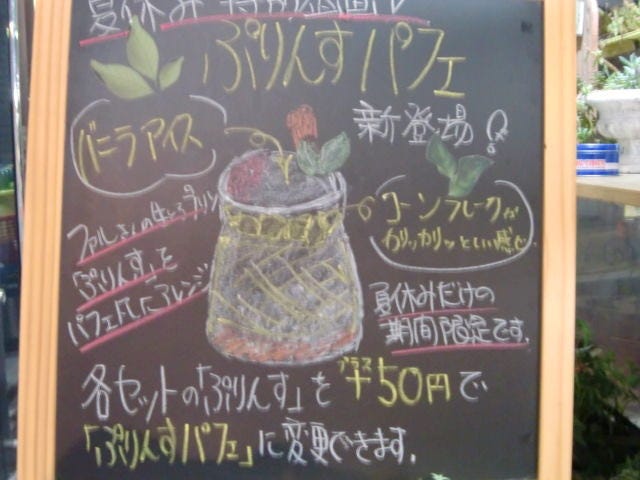 夏休み特別企画!
ぷりんすパフェ
新登場!
バニラアイス
コーンフレークが
カリッカリッといい感じ
ファルさんの生とろプリン
「ぷりんす」を
パフェ風にアレンジ
夏休みだけの
期間限定です。
各セットの「ぷりんす」を プラス+50円で
「ぷりんすパフェ」に変更できます。